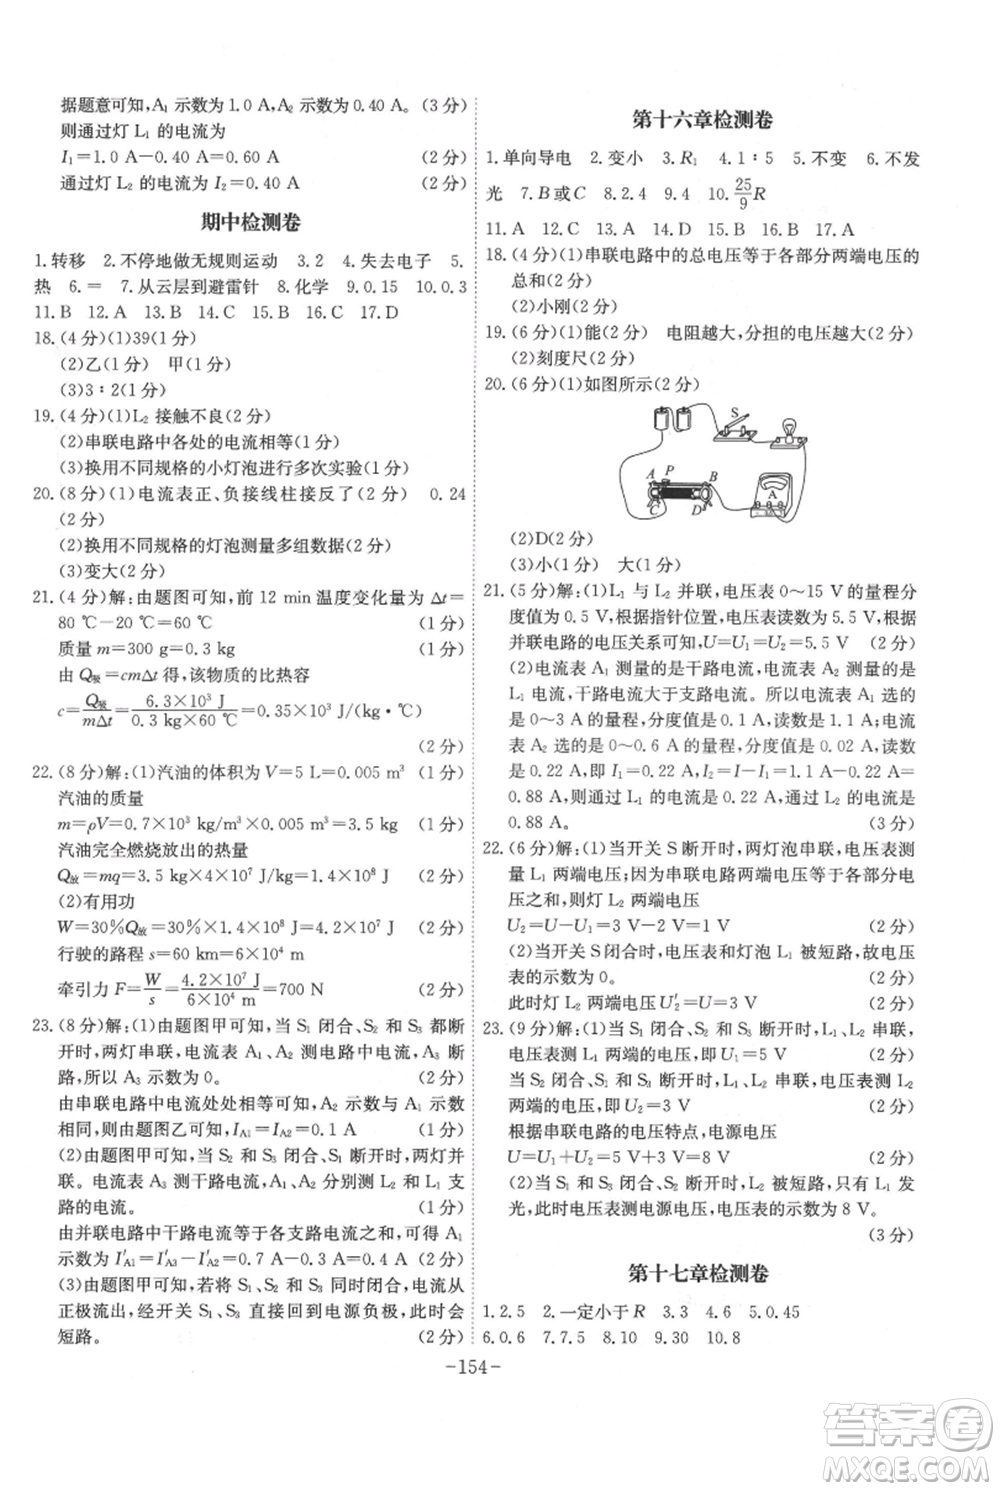 据题意可知,A₁ 示数为 1.0 A,A₂ 示数为 0.40 A。(3 分)
则通过灯 L₁ 的电流为
I₁=1.0 A-0.40 A=0.60 A (2 分)
通过灯 L₂ 的电流为 I₂=0.40 A (2 分)
期中检测卷
1.转移 2.不停地做无规则运动 3.2 4.失去电子 5.
热 6.= 7.从云层到避雷针 8.化学 9.0.15 10.0.3
11.B 12.A 13.B 14.B 15.C 16.C 17.D
18.(4 分)(1)39(1 分)
(2)乙(1 分) 甲(1 分)
(3)3∶2(1 分)
19.(4 分)(1)L₂ 接触不良(2 分)
(2)串联电路中各处的电流相等(1 分)
(3)换用不同规格的小灯泡进行多次实验(1 分)
20.(8 分)(1)电流表正、负接线柱接反了(2 分) 0.24
(2 分)
(2)换用不同规格的灯泡测量多组数据(2 分)
(3)变大(2 分)
21.(4 分)解:由题图可知,前 12 min温度变化量为 Δt=
80 ℃-20 ℃=60 ℃ (1 分)
质量 m=300 g=0.3 kg (1 分)
由 Q吸=cmΔt 得,该物质的比热容
c=Q吸/mΔt=6.3×10³ J/0.3 kg×60 ℃=0.35×10³ J/(kg·℃)
(2 分)
22.(8 分)解:(1)汽油的体积为 V=5 L=0.005 m³ (1 分)
汽油的质量
m=ρV=0.7×10³ kg/m³×0.005 m³=3.5 kg (1 分)
汽油完全燃烧放出的热量
Q放=mq=3.5 kg×4×10⁷ J/kg=1.4×10⁸ J (2 分)
(2)有用功
W=30%Q放=30%×1.4×10⁸ J=4.2×10⁷ J (2 分)
行驶的路程 s=60 km=6×10⁴ m
牵引力 F=W/s=4.2×10⁷ J/6×10⁴ m=700 N (2 分)
23.(8 分)解:(1)由题图甲可知,当 S₁ 闭合、S₂ 和 S₃ 都断
开时,两灯串联,电流表 A₁、A₂ 测电路中电流,A₃ 断
路,所以 A₃ 示数为 0。 (2 分)
由串联电路中电流处处相等可知,A₂ 示数与 A₁ 示数
相同,则由题图乙可知,I_A1=I_A2=0.1 A (1 分)
(2)由题图甲可知,当 S₂ 闭合、S₁ 和 S₃ 断开时,两灯并
联,A₃ 测干路的电流,A₁、A₂ 分别测 L₂、L₁ 所在支
路的电流。 (1 分)
由并联电路中干路电流等于各支路电流之和,可得 A₁
示数为 I′_A1=I′_A3-I′_A2=0.7 A-0.3 A=0.4 A (2 分)
(3)由题图甲可知,若将 S₂ 和 S₃ 同时闭合,电流从
正极流出,经开关 S₂、S₃ 直接回到电源负极,此时会
短路。 (2 分)
第十六章检测卷
1.单向导电 2.变小 3.R₁ 4.1∶5 5.不变 6.不发
光 7.B 或 C 8.2.4 9.4 10.25/9R
11.A 12.C 13.C 14.D 15.D 16.B 17.A
18.(4 分)(1)串联电路中的总电压等于各部分两端电压的
总和(2 分)
(2)小刚(2 分)
19.(6 分)(1)能(2 分) 电阻越大,分担的电压越大(2 分)
(2)刻度尺(2 分)
20.(6 分)(1)如图所示(2 分)
S
A P B
A
C D
(2)D(2 分)
(3)小(1 分) 大(1 分)
21.(5 分)解:(1)L₁ 与 L₂ 并联,电压表 0～15 V的量程分
度值为 0.5 V,根据指针位置,电压表读数为 5.5 V,根据
并联电路的电压关系可知,U=U₁=U₂=5.5 V (2 分)
(2)电流表 A₁ 测量的是干路电流,电流表 A₂ 测量的是
L₁ 电流,干路电流大于支路电流。所以电流表 A₁ 选的
是 0～3 A 的量程,分度值是 0.1 A,读数是 1.1 A;电流
表 A₂ 选的是 0～0.6 A 的量程,分度值是 0.02 A,读数
是 0.22 A,即 I₁=0.22 A,I₂=I-I₁=1.1 A-0.22 A=
0.88 A,则通过 L₁ 的电流是 0.22 A,通过 L₂ 的电流是
0.88 A。 (3 分)
22.(6 分)解:(1)当开关 S断开时,两灯泡串联,电压表测
量 L₁ 两端电压;因为串联电路两端电压等于各部分电
压之和,所以 L₂ 两端电压
U₂=U-U₁=3 V-2 V=1 V (2 分)
(2)当开关 S闭合时,电压表和灯泡 L₁ 被短路,故电压
表的示数为 0。 (2 分)
此时灯 L₂ 两端电压 U′₂=U=3 V (2 分)
23.(9 分)解:(1)当 S₂ 和 S₃ 闭合、S₁ 断开时,L₁、L₂ 串联,
电压表测 L₁ 两端的电压,即 U₁=5 V (2 分)
当 S₂ 闭合、S₁ 和 S₃ 断开时,L₁、L₂ 串联,电压表测 L₂
两端的电压,即 U₂=3 V (2 分)
根据串联电路的电压特点,电源电压
U=U₁+U₂=5 V+3 V=8 V (2 分)
(2)当 S₁、S₃ 闭合、S₂ 断开时,L₂ 被短路,只有 L₁ 发
光,此时电压表测电源电压,电压表的示数为 8 V。
(3 分)
第十七章检测卷
1.2.5 2.一定小于 R 3.3 4.6 5.0.45
6.0.6 7.7.5 8.10 9.30 10.8
-154-
答案圈
MXQE.COM